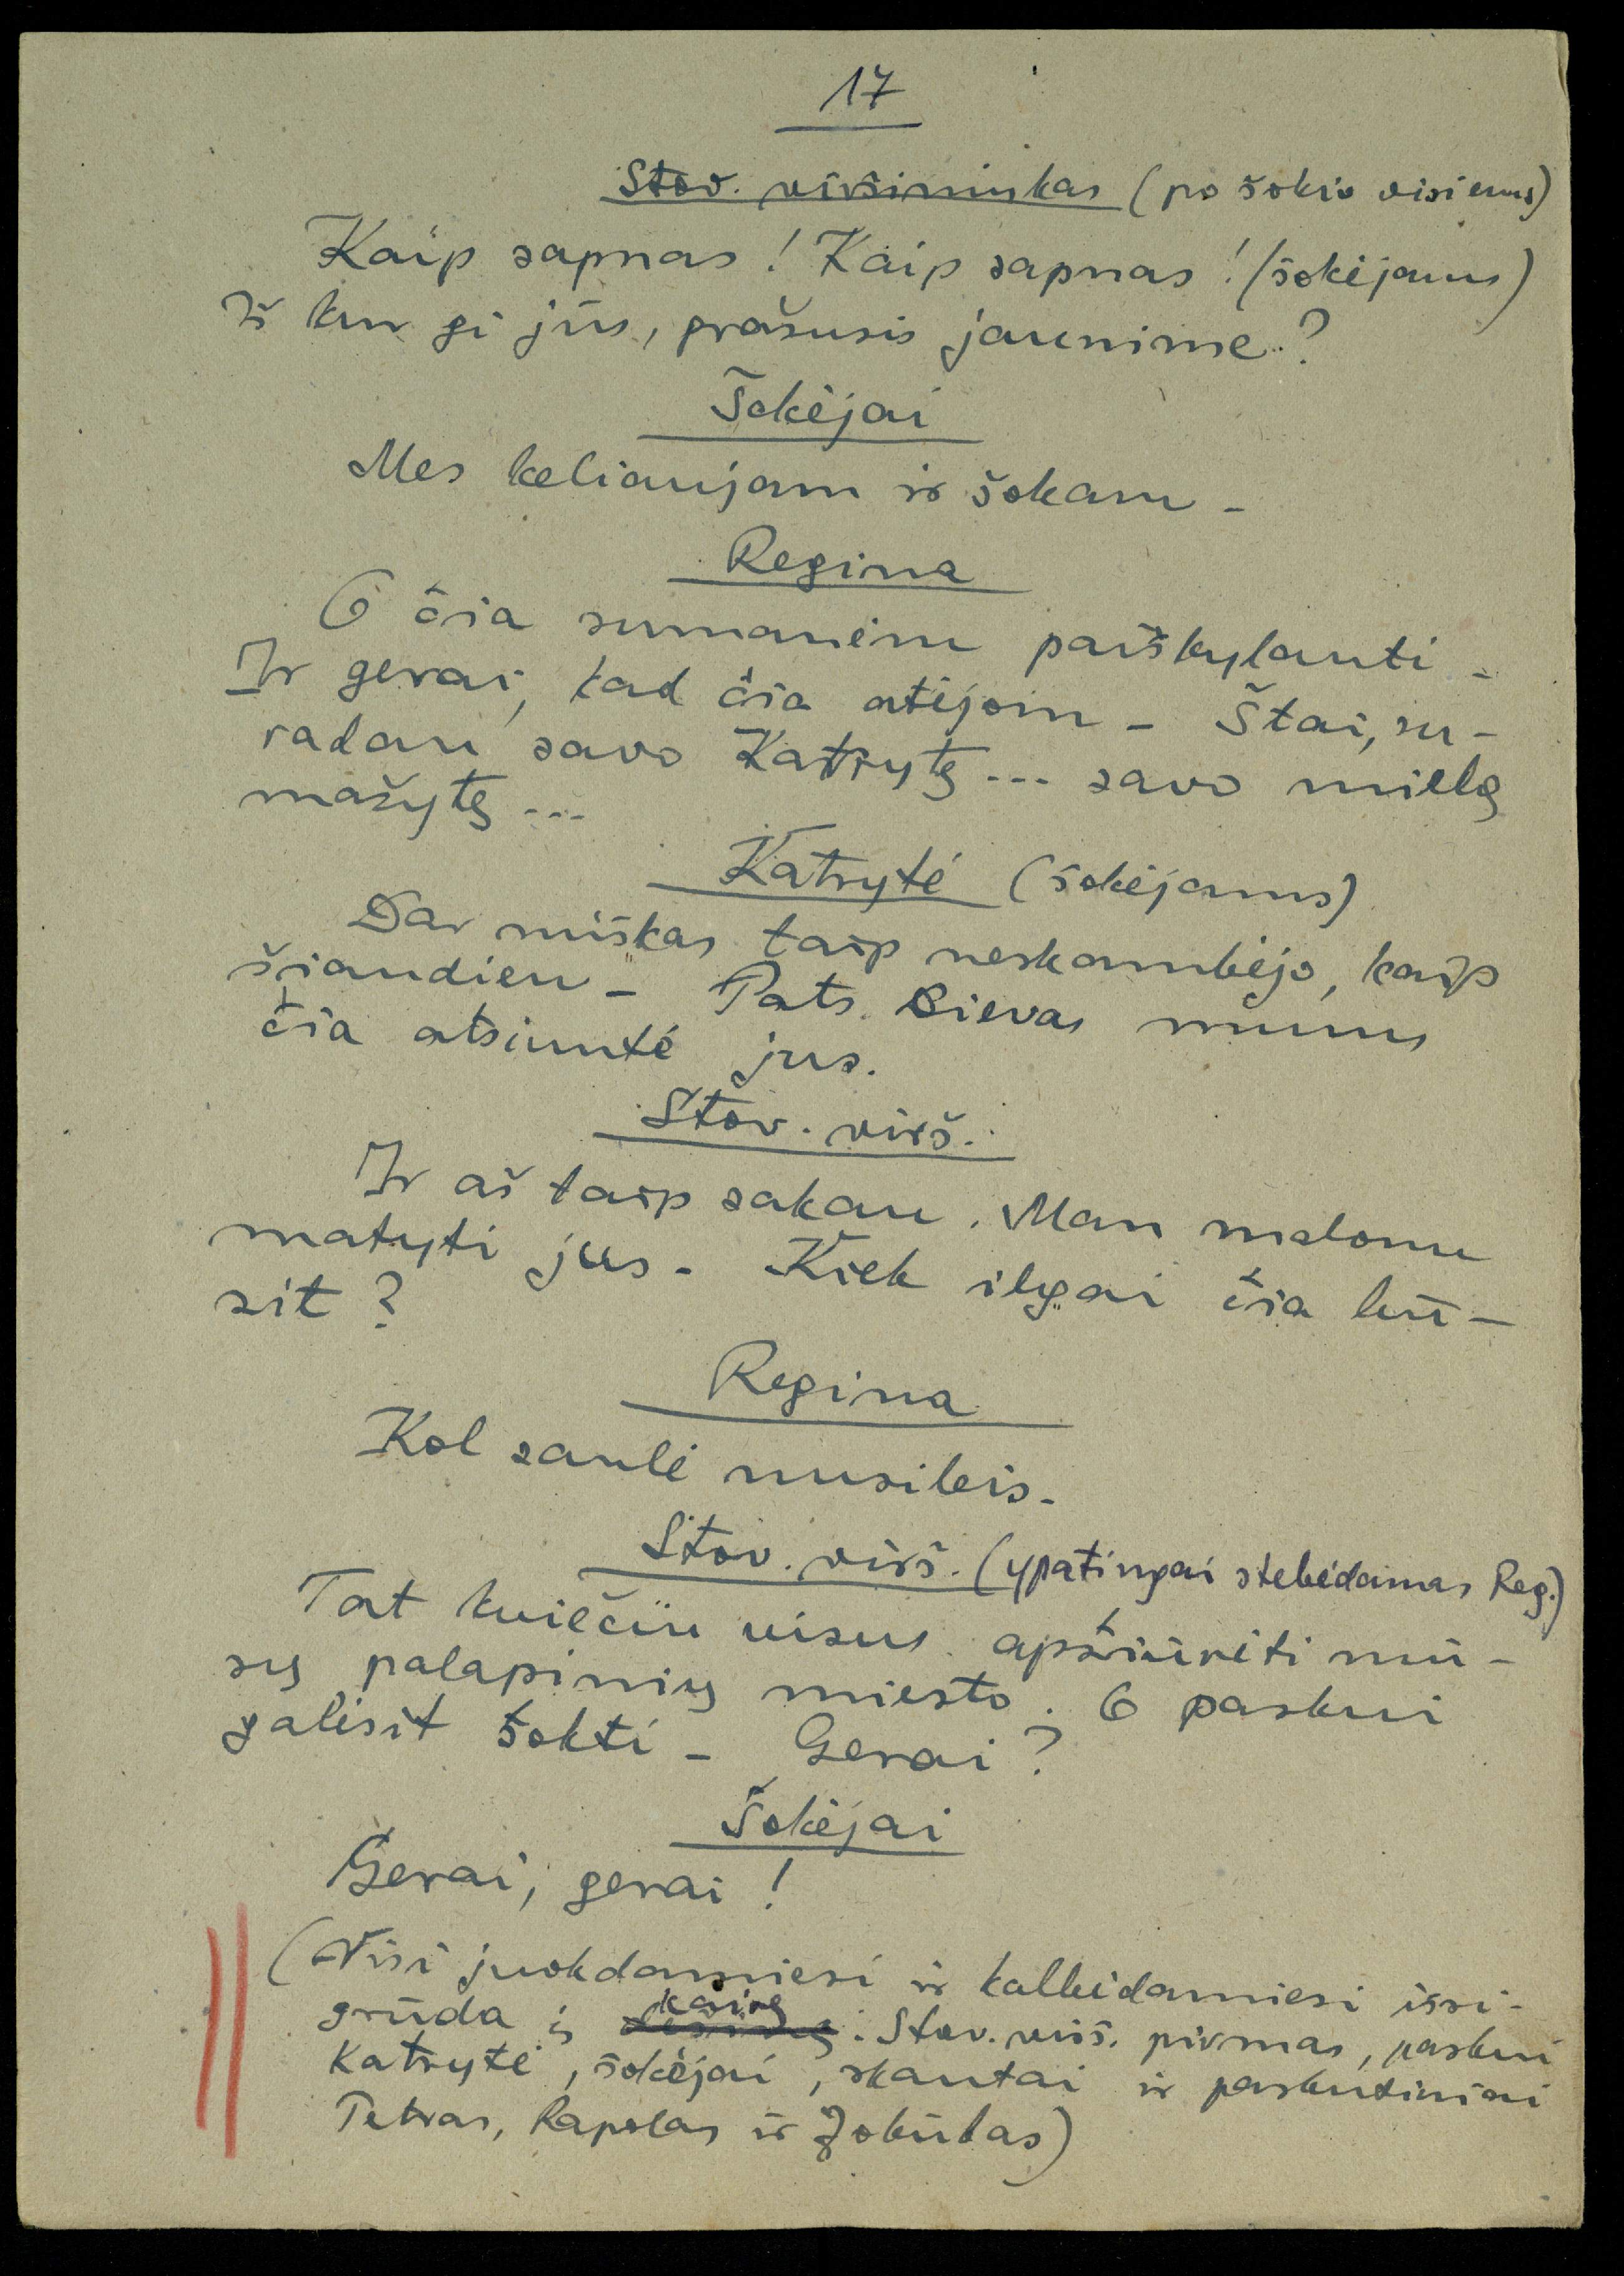 17
Stov. viršininkas (po šokio visiems)
Kaip sapnas! Kaip sapnas! (šokėjams)
Iš kur gi jūs, prašusis jaunime?
Šokėjai
Mes keliaujam ir šokam -
Regina
O čia sumanėm paiškylauti -
Ir gerai, kad čia atėjom - Štai, su-
radau savo Katrytę... savo mielą
mažytę...
Katrytė (šokėjams)
Dar miškas taip neskambėjo, kaip
šiandien - Pats Dievas mums
čia atsiuntė jus.
Stov. virš.
Ir aš taip sakau. Man malonu
matyti jus - Kiek ilgai čia bū-
sit?
Regina
Kol saulė nusileis -
Stov. virš. (ypatingai stebėdamas Reg.)
Tat kviečiu visus apžiūrėti mū-
sų palapinių miesto. O paskui
galėsit šokti - Gerai?
Šokėjai
Gerai, gerai!
(Visi juokdamiesi ir kalbėdamiesi išsi-
grūda į kairę. Stov. virš. pirmas, paskui
Katrytė, šokėjai, skautai ir paskutiniai
Petras, Rapolas ir Jokūbas)